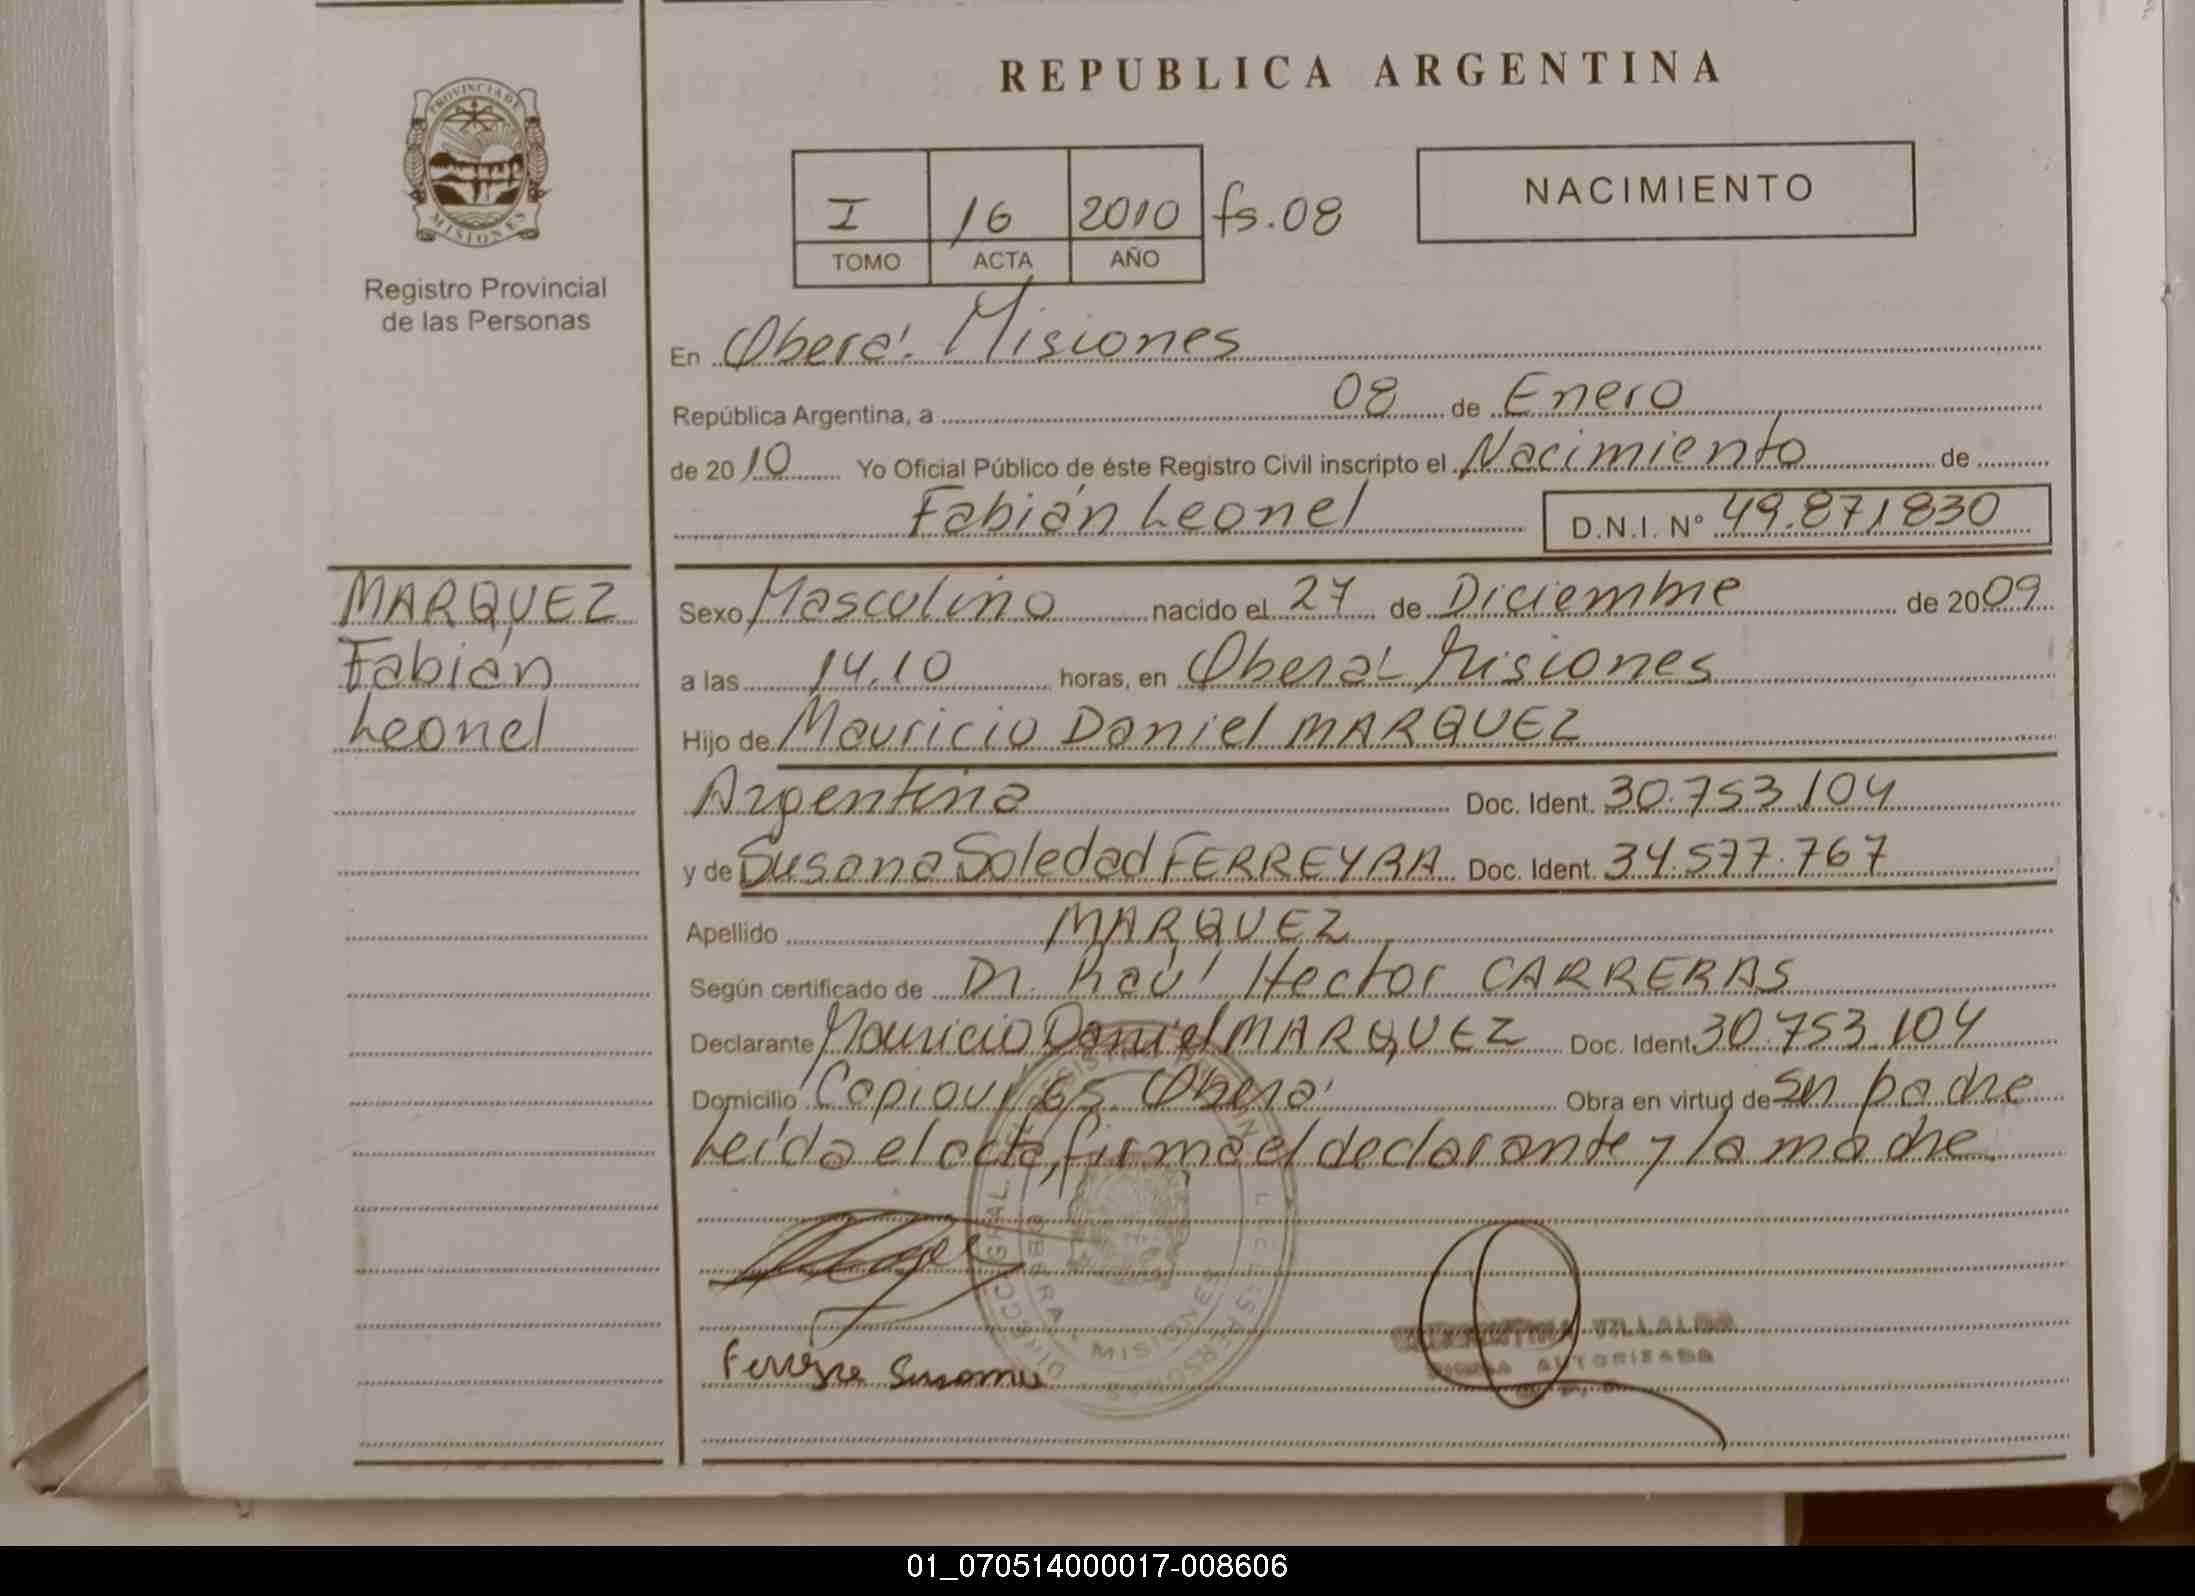 REPUBLICA ARGENTINA
PROVINCIA DE
MISIONES
Registro Provincial
de las Personas
I 16 2010 fs.08
TOMO ACTA AÑO
NACIMIENTO
En Oberá. Misiones
República Argentina, a 08 de Enero
de 2010 Yo Oficial Público de éste Registro Civil inscripto el Nacimiento de
Fabián Leonel D.N.I. Nº 49.871830
MARQUEZ
Fabián
Leonel
Sexo Masculino nacido el 27 de Diciembre de 2009
a las 14.10 horas, en Oberá Misiones
Hijo de Mauricio Daniel MARQUEZ
Argentina Doc. Ident. 30.753.104
y de Susana Soledad FERREYRA Doc. Ident. 34.577.767
Apellido MARQUEZ
Según certificado de Dr. Raúl Hector CARRERAS
Declarante Mauricio Daniel MARQUEZ Doc. Ident. 30.753.104
Domicilio 65 Oberá Obra en virtud de Ser padre
Leída el acta, firma el declarante y la madre.
Susana
VILLALBA
AUTORIZADA
01_070514000017-008606